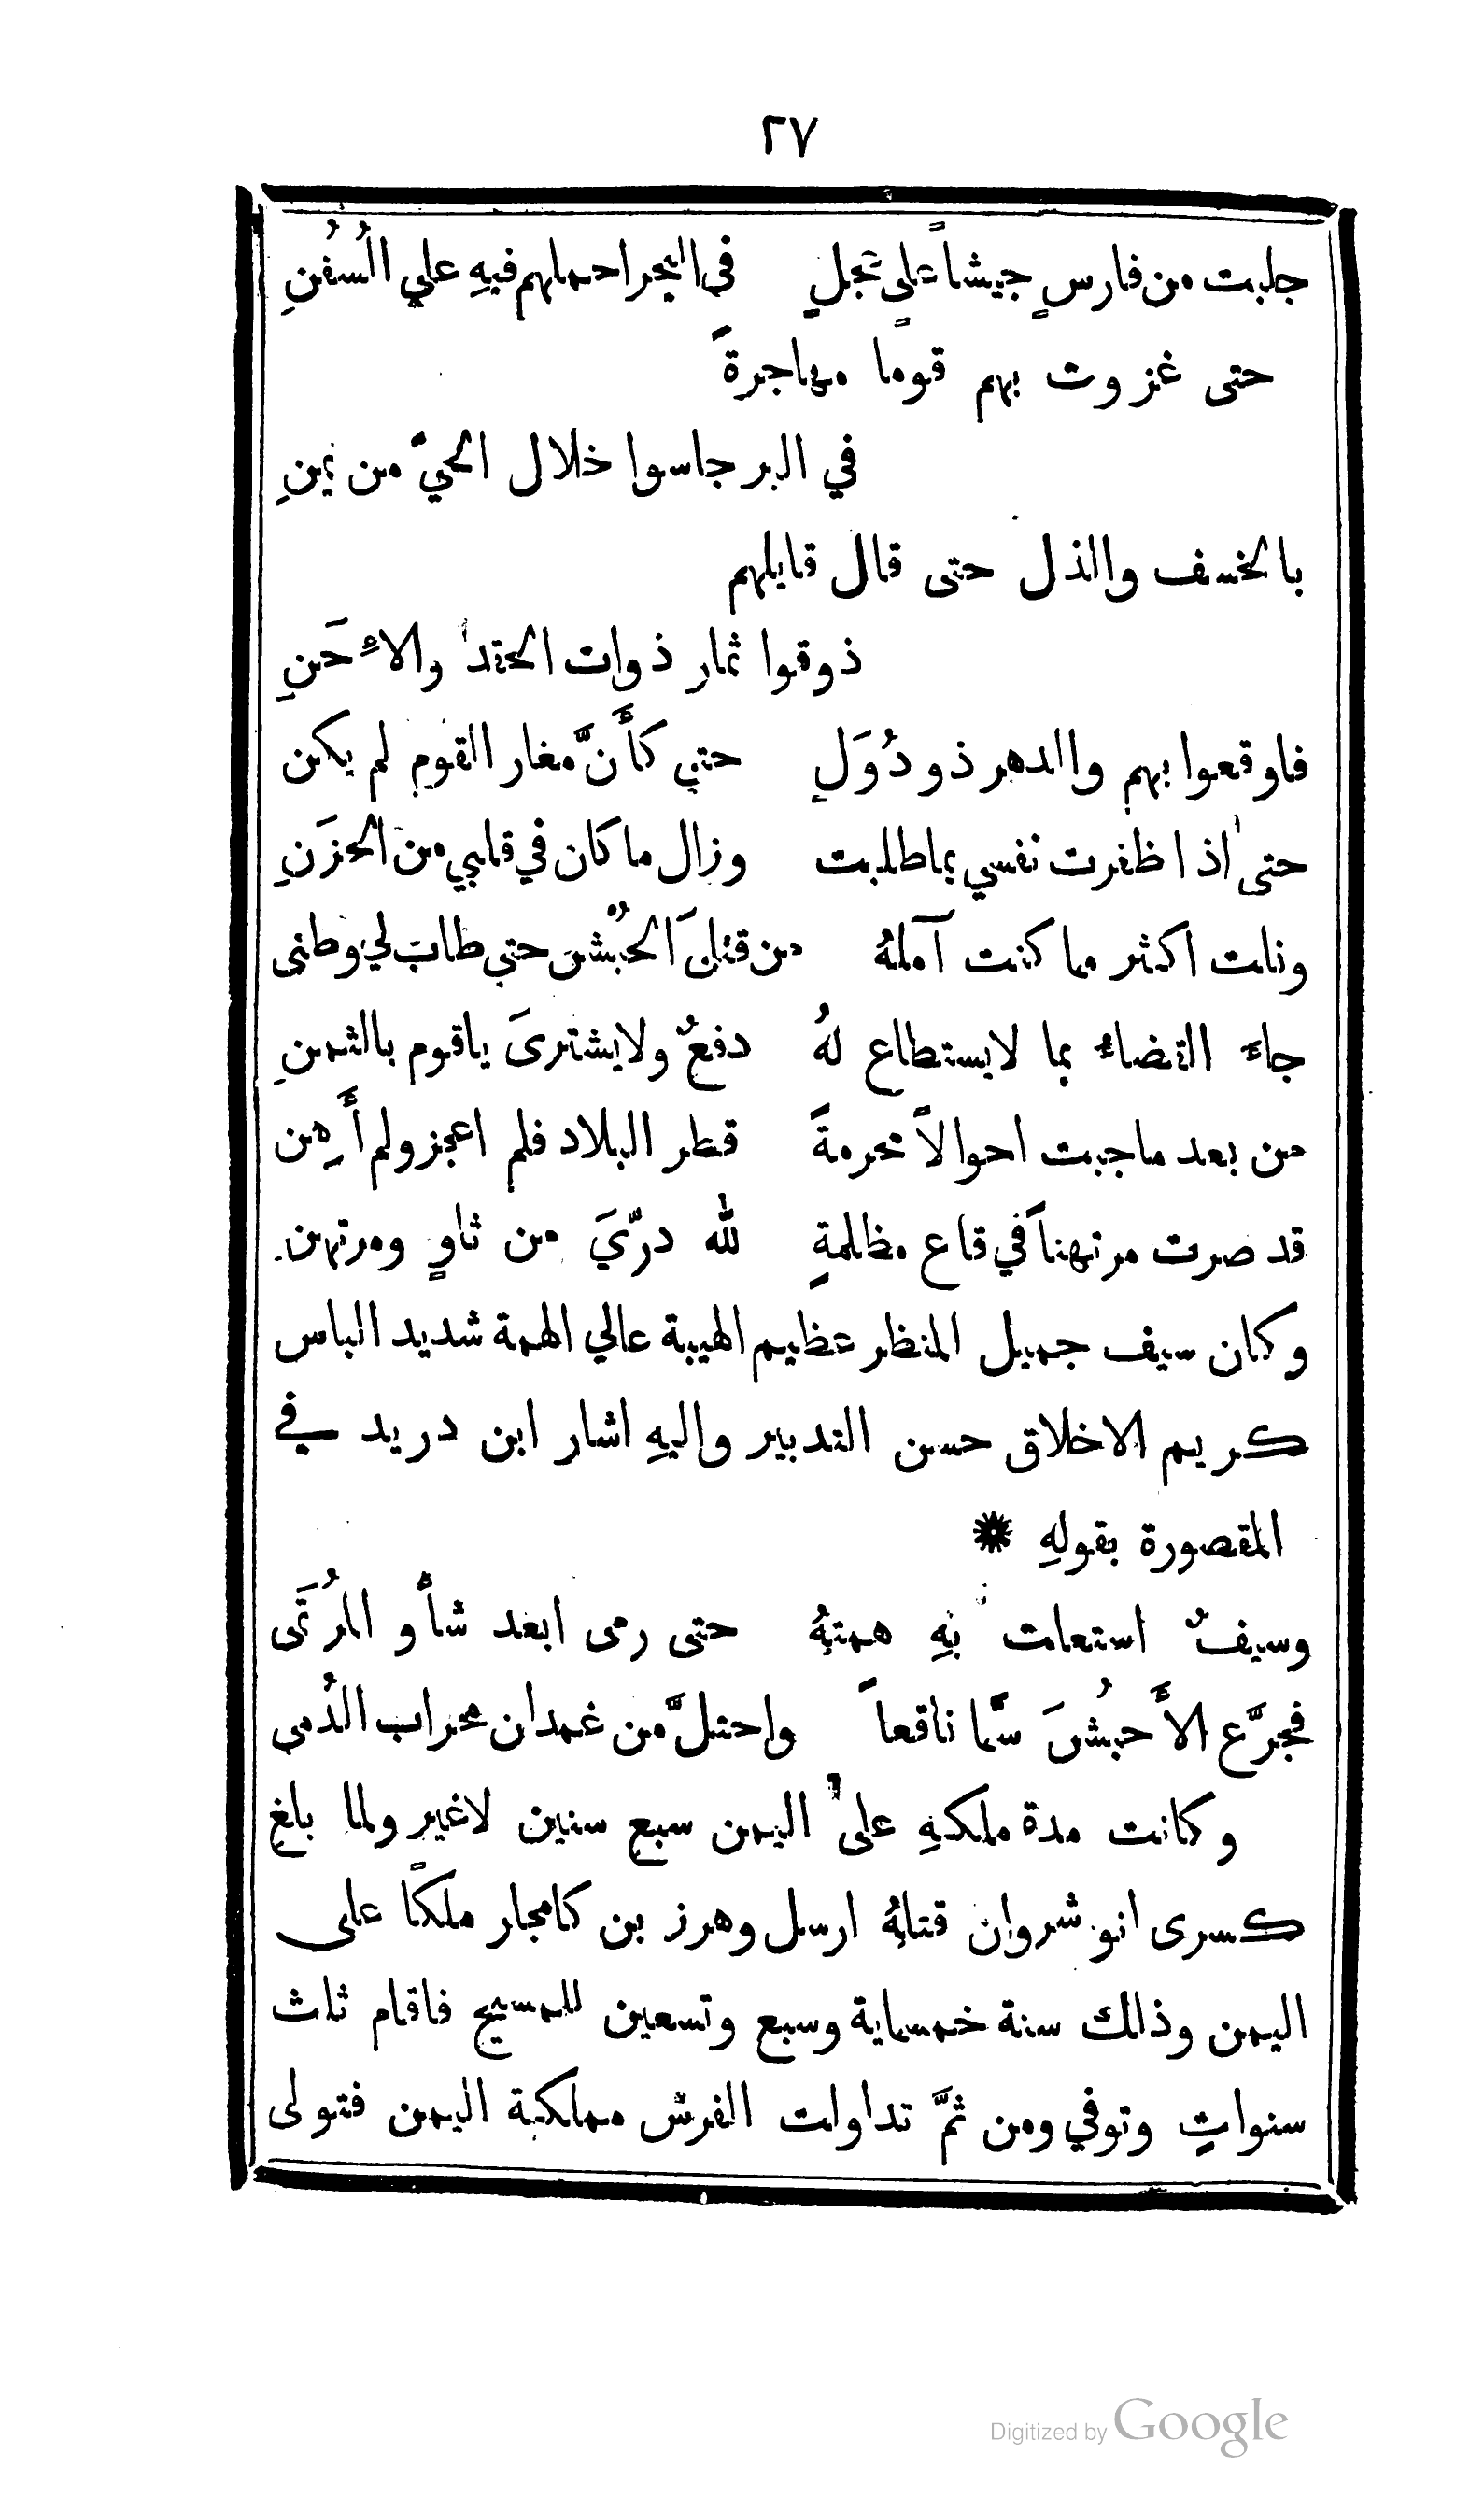 ٢٧
جلبت من فارسٍ جيشاً على عجلٍ في البحر احملهم فيهِ علي السُفُنِ
حتى غزوت بهم قومًا مهاجرةً
في البر جاسوا خلال الحيّ من يمنِ
بالخسف والذل حتى قال قايلهم
ذوقوا ثمار ذوات الحقد والإحَنِ
فاوقعوا بهم والدهر ذو دُوَلٍ حتي كأَنَّ مغار القوم لم يكن
حتى اذا ظفرت نفسي بما طلبت وزال ما كان في قلبي من الحزَنِ
ونلت اكثر مما كنت آملهُ من قتل الحُبُش حتي طاب لي وطني
جاءَ القضاءُ بما لا يستطاع لهُ دفعٌ ولا يشترىَ يا قوم بالثمنِ
من بعد ما جبت احوالاً محرمةً قطر البلاد فلم اعجز ولم أَهِن
قد صرت مرتهناً في قاع مظلمةٍ لله درّيَ من ثاوٍ ومرتهن
وكان سيف جميل المنظر عظيم الهيبة عالي الهمة شديد الباس
كريم الاخلاق حسن التدبير واليهِ اشار ابن دريد في
المقصورة بقولهِ *
وسيفٌ استعلت بهِ همتهُ حتى رمى ابعد شأو المُرتَمَى
فجرَّع الأَحبُشَ سمًّا ناقعاً واحتلَّ من غمدان محراب الدُمى
وكانت مدة ملكهِ على اليمن سبع سنين لاغير ولما بلغ
كسرى انو شروان قتلهُ ارسل وهرز بن كامجار ملكًا على
اليمن وذلك سنة خمسماية وسبع وتسعين للمسيح فاقام ثلث
سنواتٍ وتوفي ومن ثمَّ تداولت الفرس مملكة اليمن فتولى
Digitized by Google